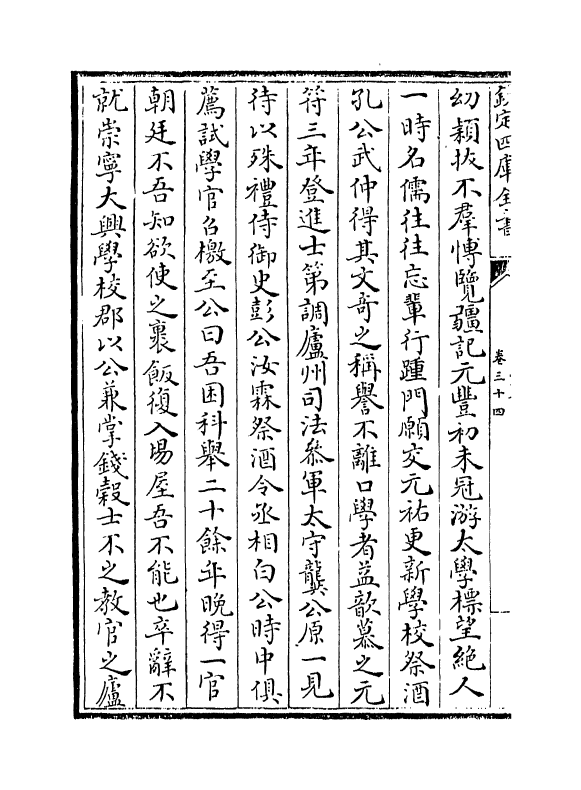 欽定四庫全書
卷三十四
幼穎拔不羣愽覽彊記元豐初未冠游太學標望絶人
一時名儒往往忘輩行踵門願交元祐更新學校祭酒
孔公武仲得其文奇之稱譽不離口學者益歆慕之元
符三年登進士第調廬州司法叅軍太守龔公原一見
待以殊禮侍御史彭公汝霖祭酒今丞相白公時中俱
薦試學官召檄至公曰吾困科舉二十餘年晚得一官
朝廷不吾知欲使之裹飯復入場屋吾不能也卒辭不
就崇寧大興學校郡以公兼掌錢穀士不之教官之廬